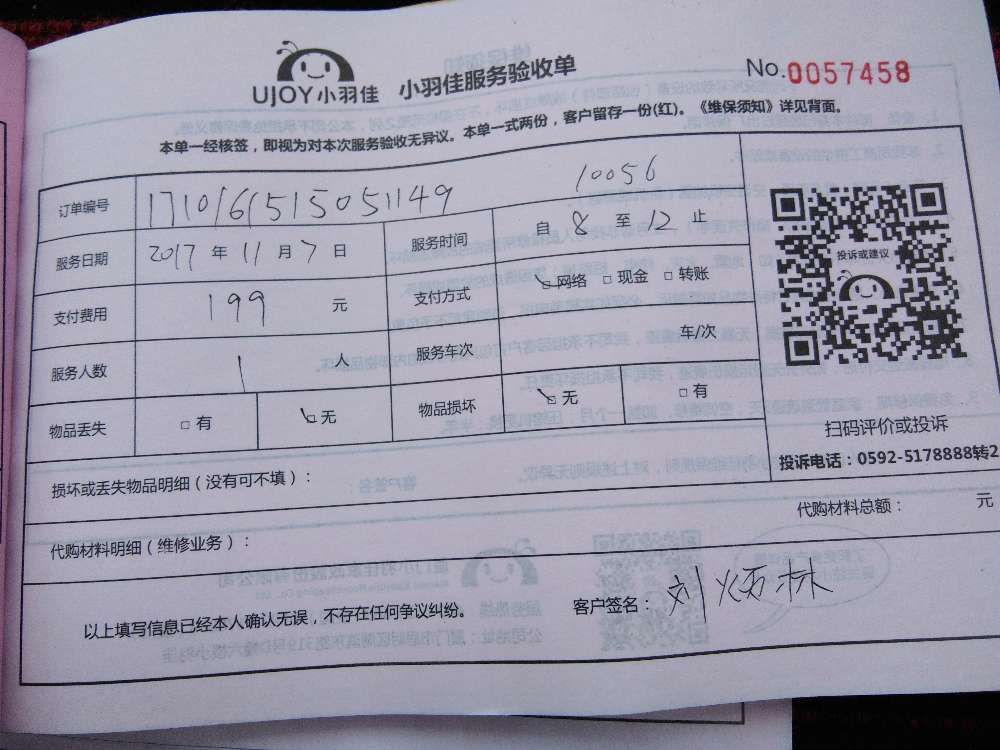 UJOY小羽佳 小羽佳服务验收单 No.0057458
本单一经核签，即视为对本次服务验收无异议。本单一式两份，客户留存一份(红)。《维保须知》详见背面。
订单编号 1710161515051149 10056
服务日期 2017 年 11 月 7 日 服务时间 自 8 至 12 止
支付费用 199 元 支付方式 网络 现金 转账
服务人数 1 人 服务车次 车/次
物品丢失 有 无 物品损坏 无 有
投诉或建议
扫码评价或投诉
投诉电话：0592-5178888转2
损坏或丢失物品明细（没有可不填）：
代购材料明细（维修业务）： 代购材料总额： 元
以上填写信息已经本人确认无误，不存在任何争议纠纷。 客户签名：刘炳林